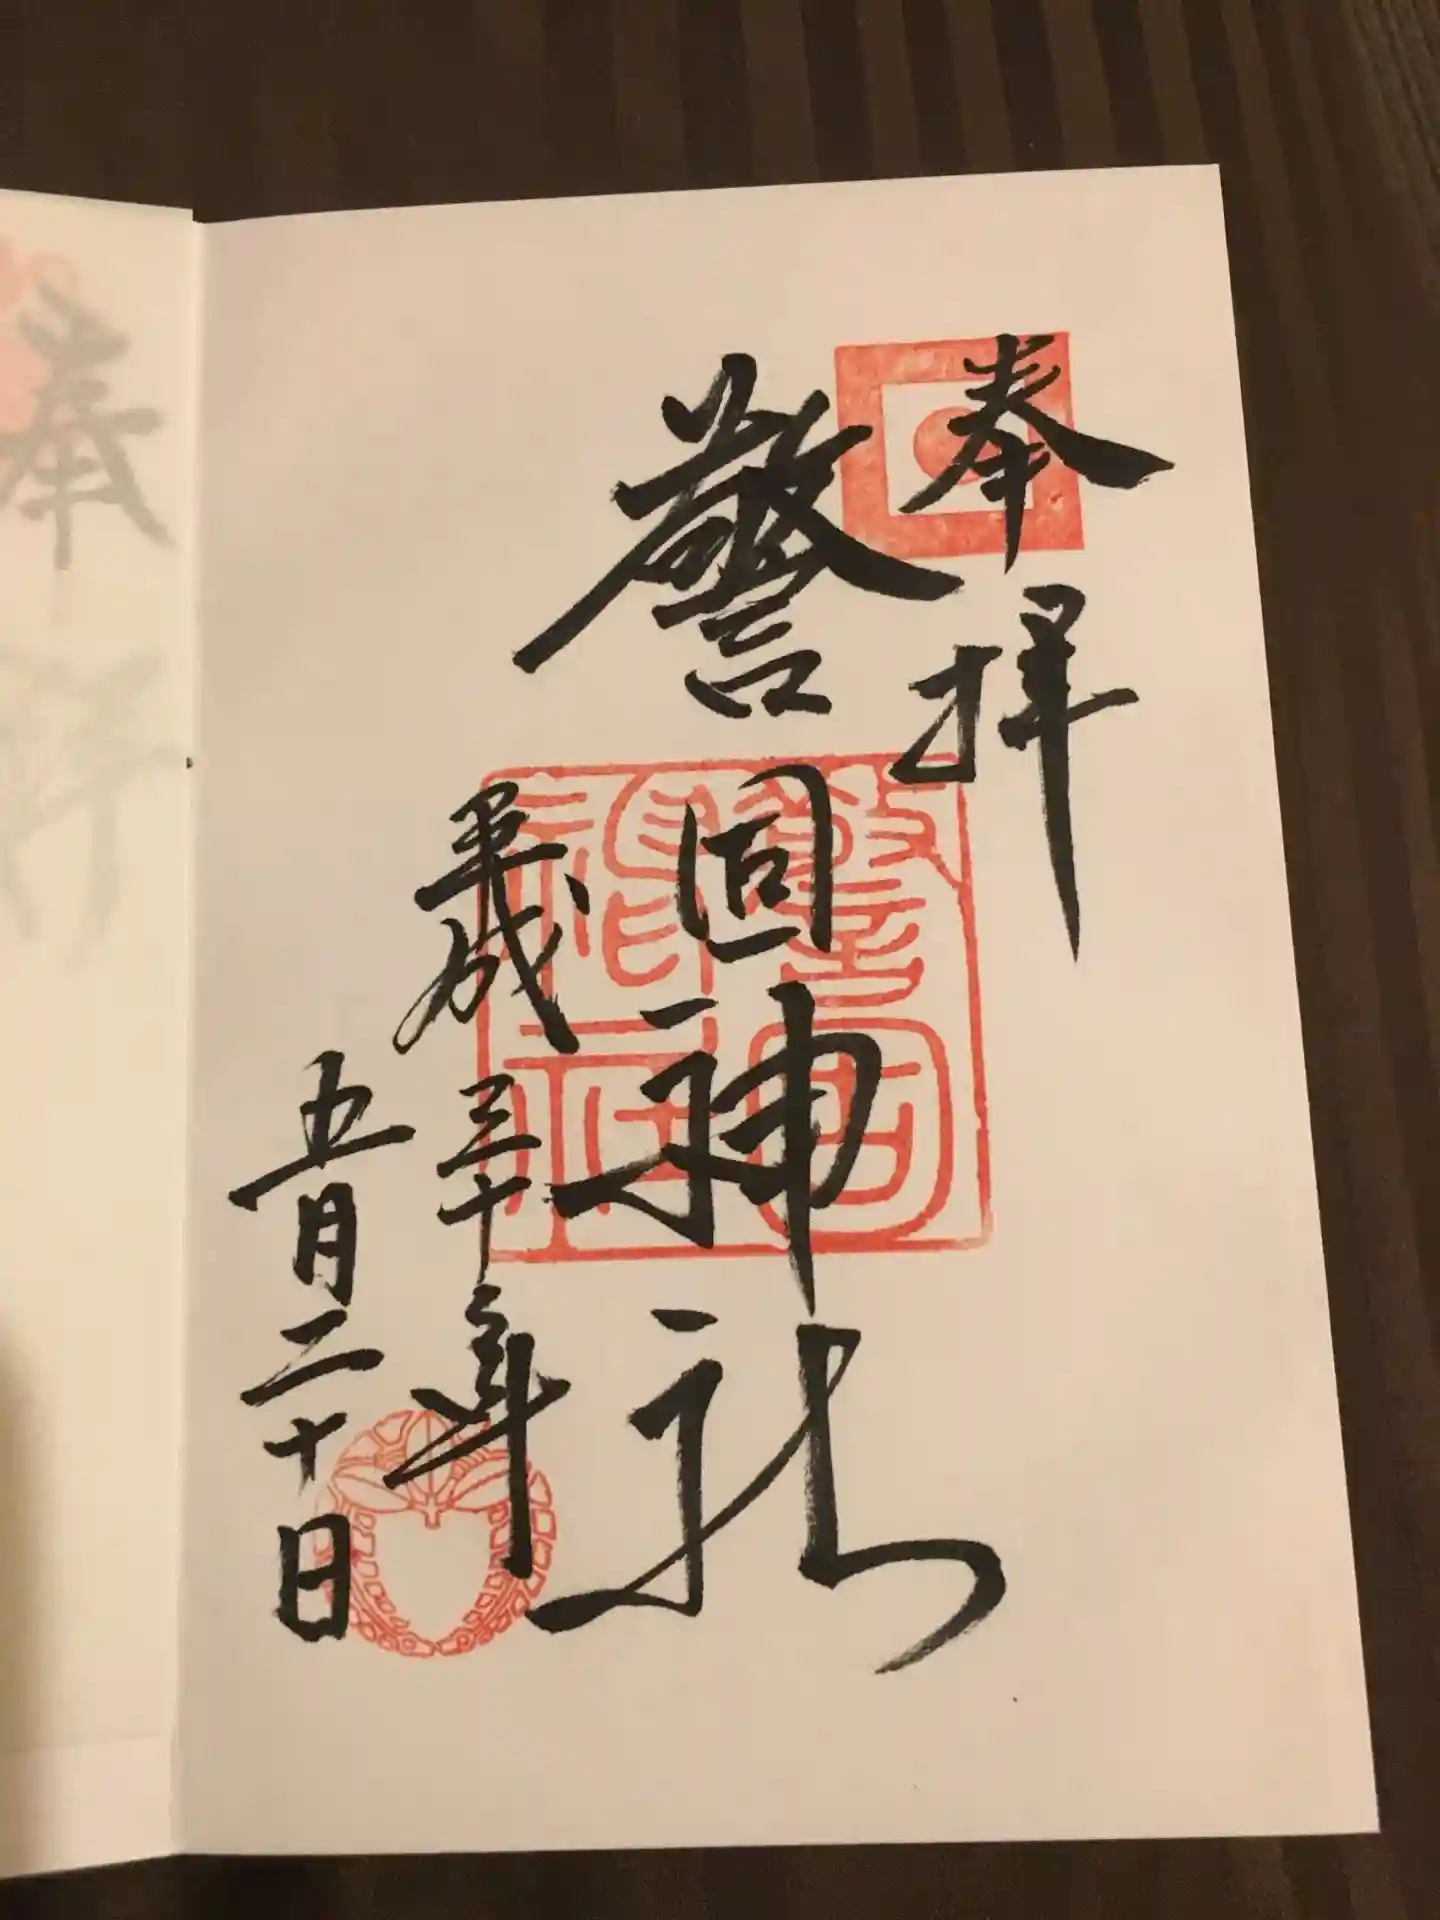 奉拝
警固神社
警固神社
平成三十年
五月二十日
奉